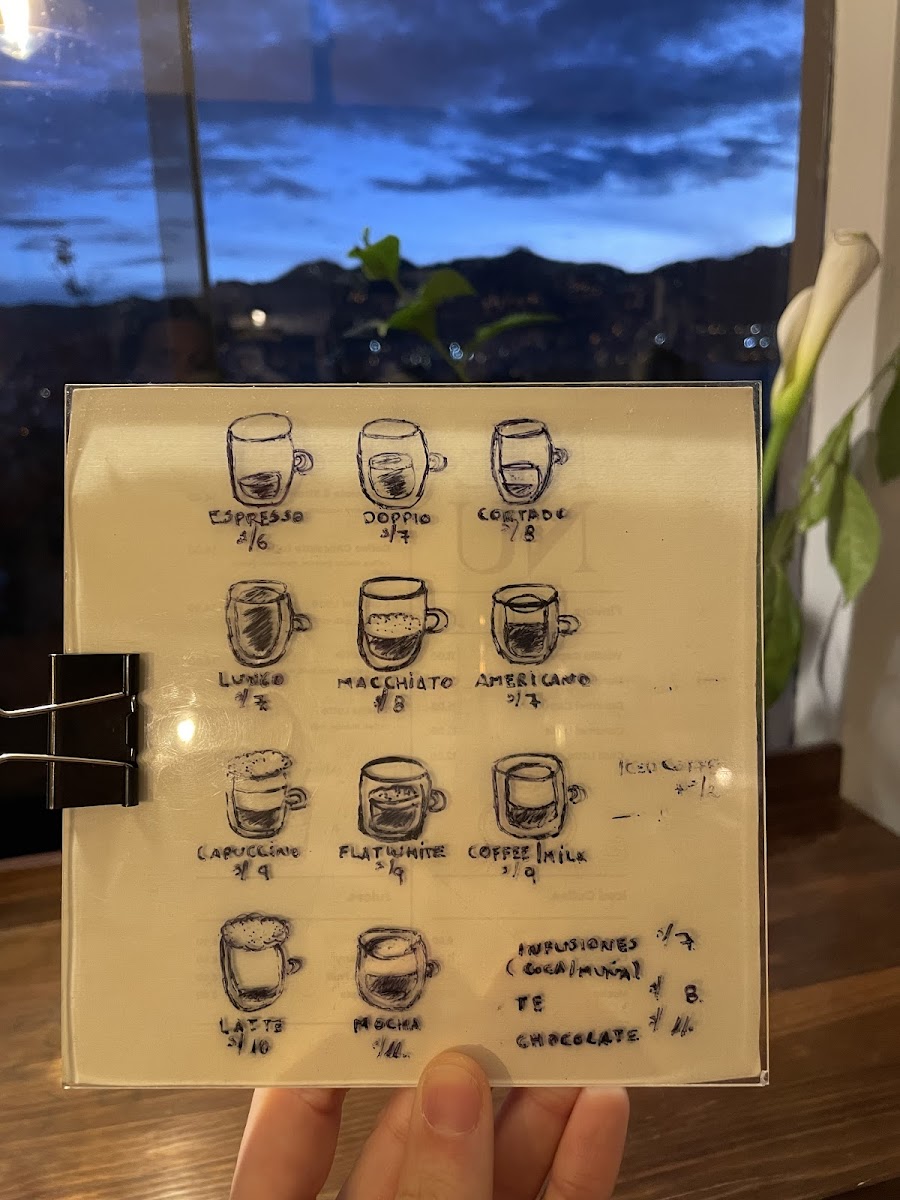 ESPRESSO
S/6
DOPPIO
S/7
CORTADO
S/8
LUNGO
S/7
MACCHIATO
S/8
AMERICANO
S/7
CAPUCCINO
S/9
FLAT WHITE
S/9
COFFEE/MILK
S/9
ICED COFFE
LATTE
S/10
MOCHA
S/11.
INFUSIONES S/7
(COCA/MUÑA)
TE S/ 8.
CHOCOLATE S/ 11.